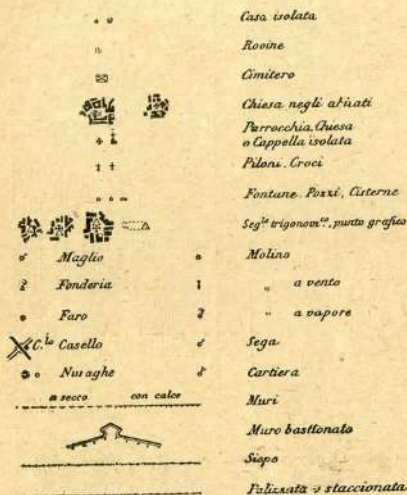 Casa isolata
Rovine
Cimitero
Chiesa negli abitati
Parrocchia, Chiesa
o Cappella isolata
Piloni, Croci
Fontane, Pozzi, Cisterne
Seg.le trigonom.co, punto grafico
Maglio Molino
Fonderia „ a vento
Faro „ a vapore
C.lo Casello Sega
Nuraghe Cartiera
a secco con calce Muri
Muro bastionato
Siepe
Palizzata o staccionata